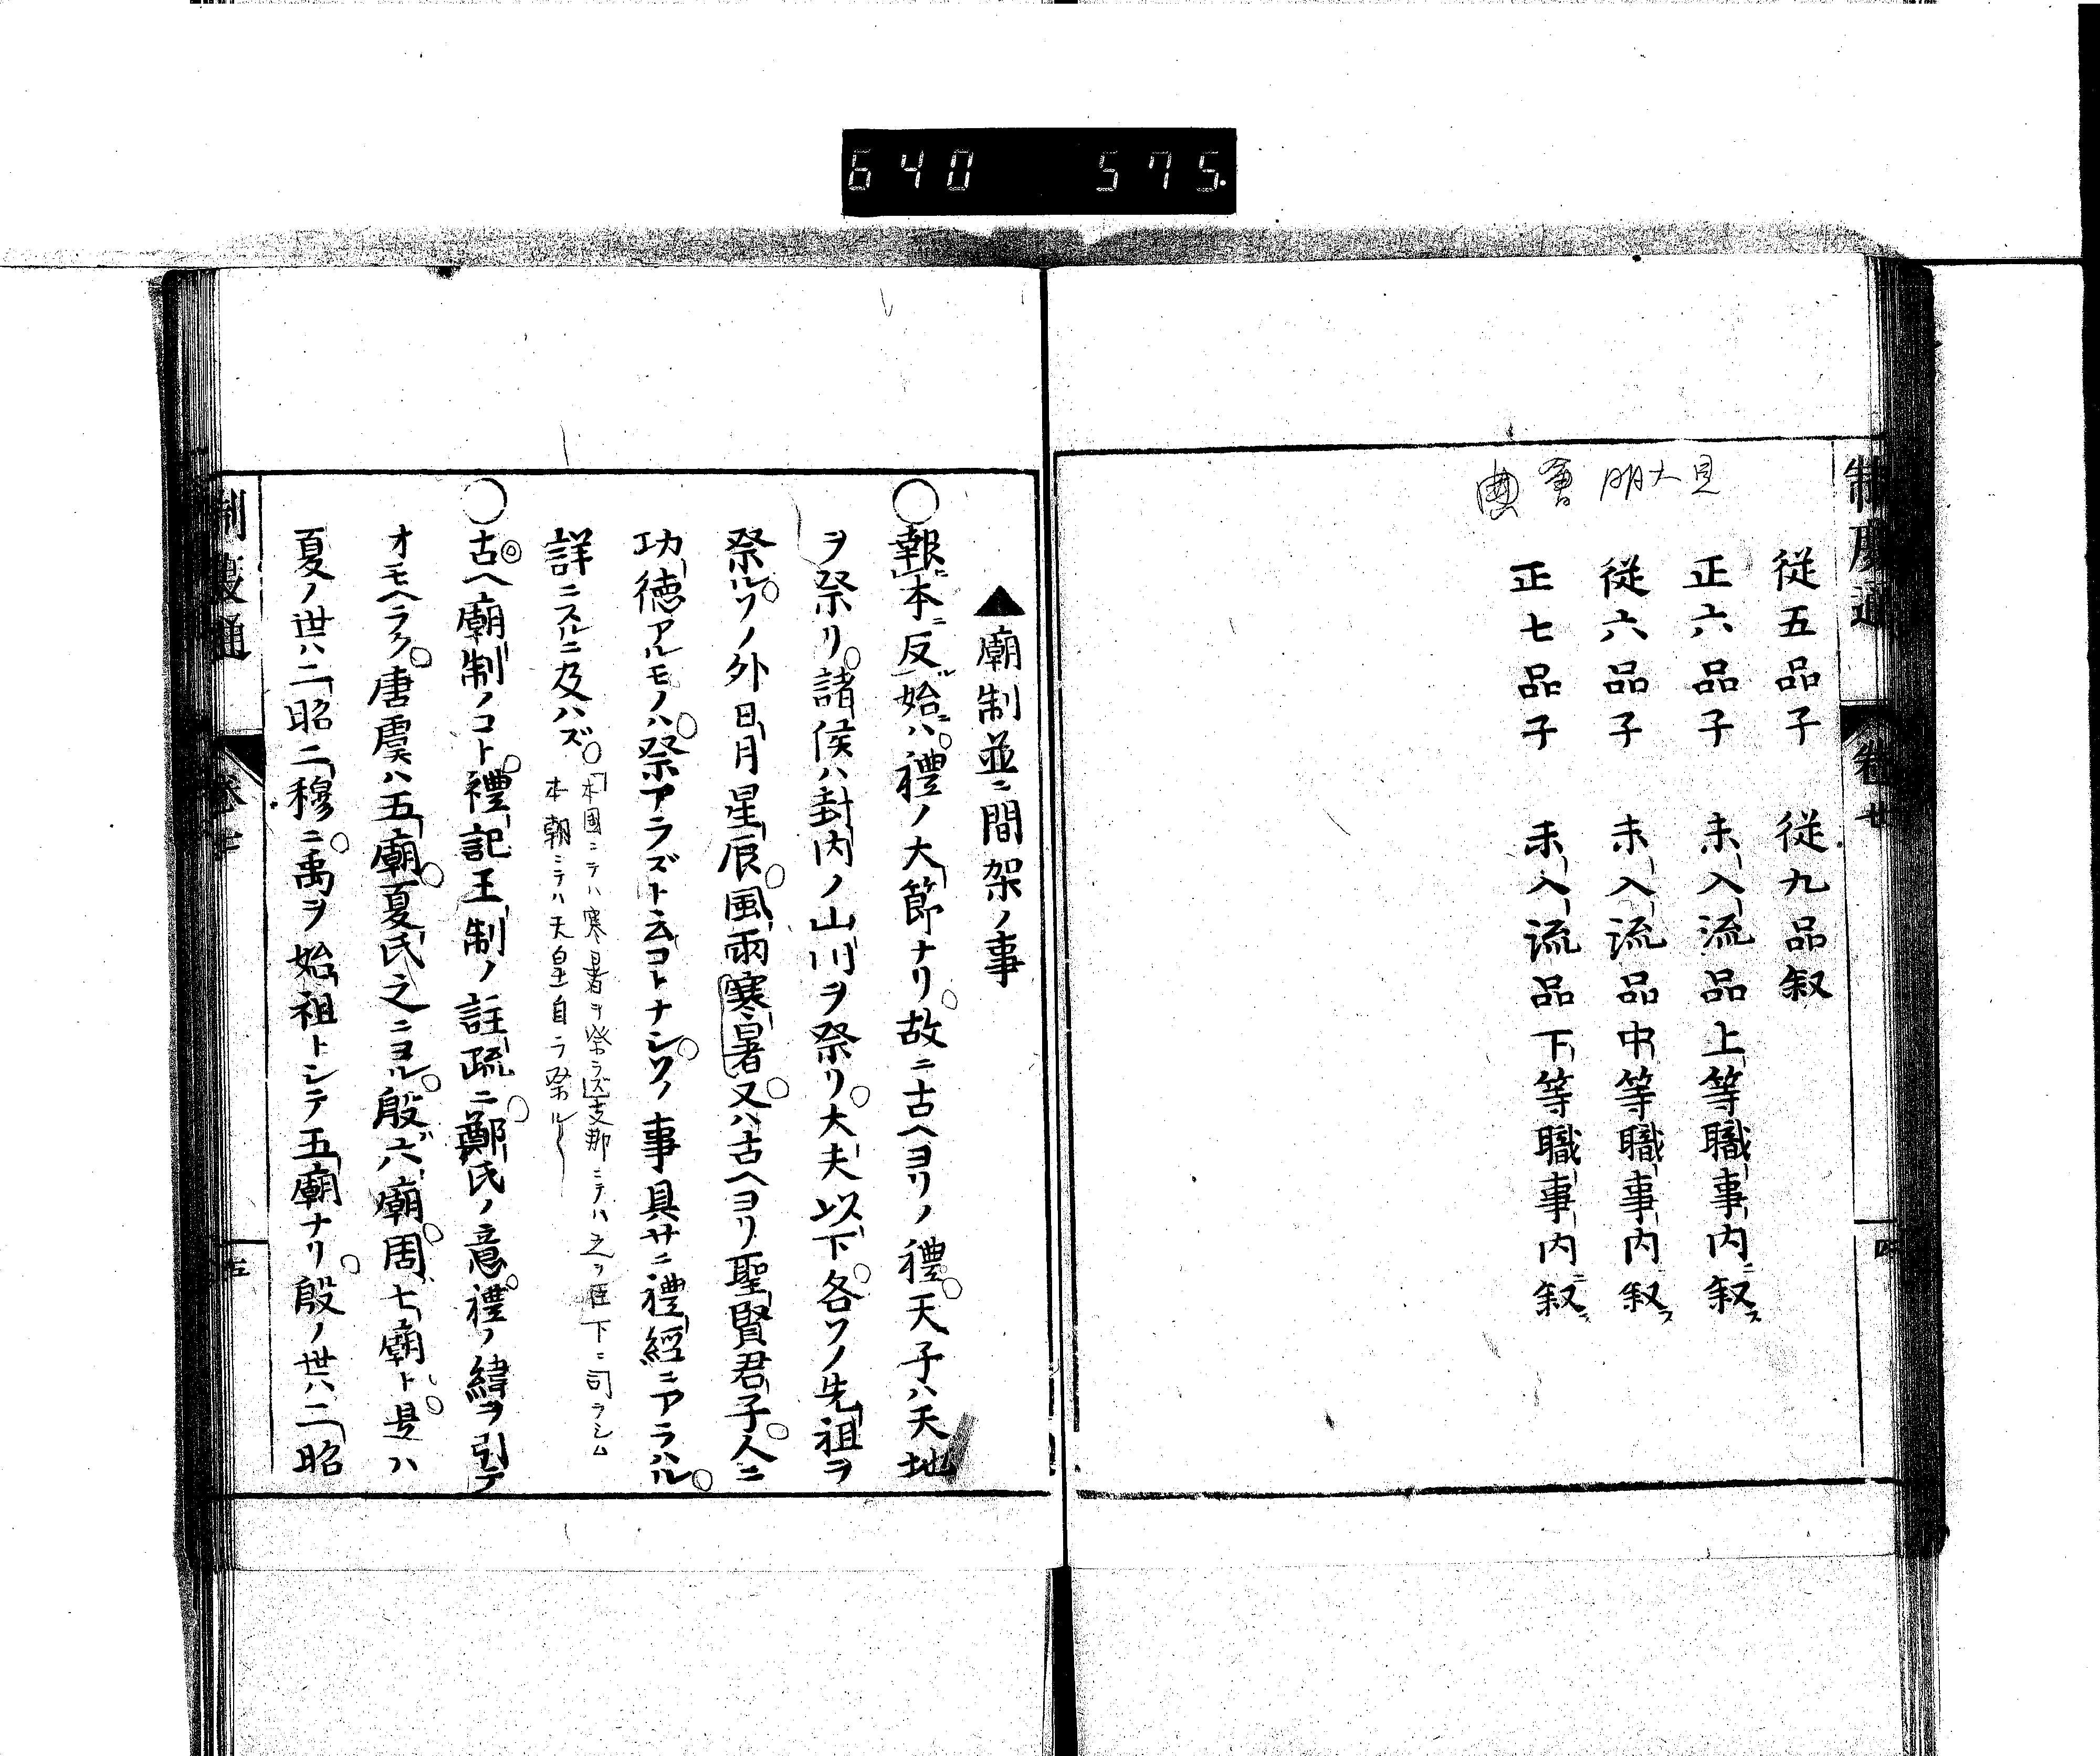 640 575.
制度通 卷
見大明會典
從五品子 從九品叙
正六品子 未入流品上等職事内ニ叙ス
從六品子 未入流品中等職事内ニ叙ス
正七品子 未入流品下等職事内ニ叙ス
▲廟制並ニ間架ノ事
○報本ニ反始ハ禮ノ大節ナリ故ニ古ヘヨリノ禮天子ハ天地
ヲ祭リ諸侯ハ封内ノ山川ヲ祭リ大夫以下各ソノ先祖ヲ
祭ルソノ外日月星辰風雨寒暑又ハ古ヘヨリ聖賢君子人ニ
功徳アルモノハ祭アラズト云コトナシソノ事具サニ禮經ニアラハル
詳ニスルニ及ハズ
本國ニテハ寒暑ヲ祭ラズ支那ニテハ之ヲ臣下ニ司ラシム
本朝ニテハ天皇自ラ祭ル
○古ヘ廟制ノコト禮記王制ノ註疏ニ鄭氏ノ意禮ノ緯ヲ引テ
オモヘラク唐虞ハ五廟夏氏之ニヨル殷ハ六廟周七廟ト是ハ
夏ノ世ハ二昭二穆ニ禹ヲ始祖トシテ五廟ナリ殷ノ世ハ二昭
制度通 卷 五